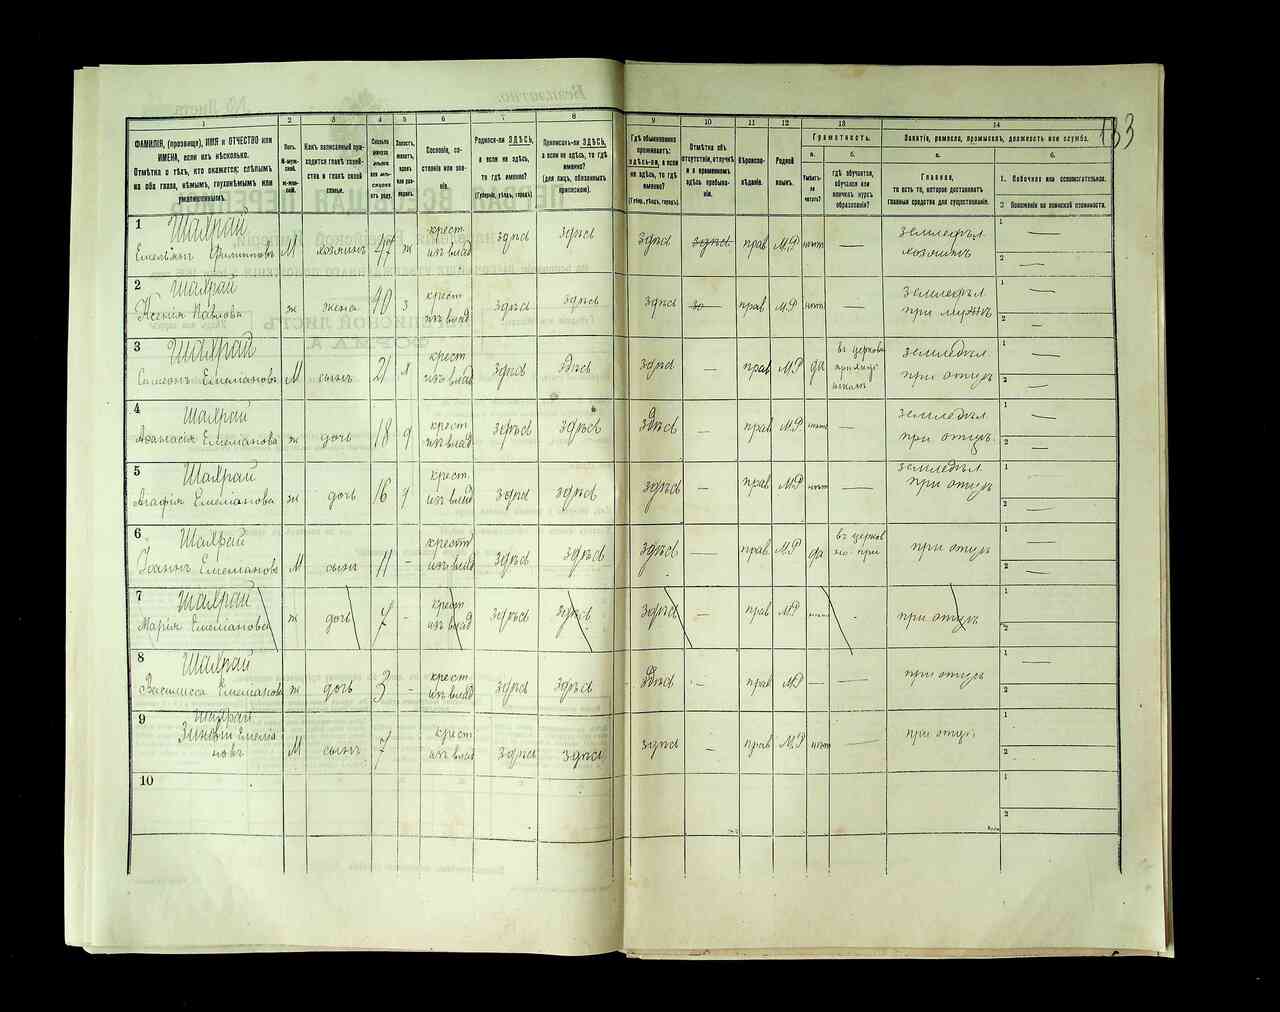 133
1 2 3 4 5 6 7 8 9 10 11 12 13 14
ФАМИЛІЯ, (прозвище), ИМЯ и ОТЧЕСТВО или
ИМЕНА, если ихъ нѣсколько.
Отмѣтка о тѣхъ, кто окажется: слѣпымъ
на оба глаза, нѣмымъ, глухонѣмымъ или
умалишеннымъ.
Полъ.
М-муж-
ской.
Ж-жен-
скій.
Какъ записанный при-
ходится главѣ хозяй-
ства и главѣ своей
семьи.
Сколько
минуло
лѣтъ
или мѣ-
сяцевъ
отъ роду.
Холостъ,
женатъ,
вдовъ
или раз-
веденъ.
Сословіе, со-
стояніе или зва-
ніе.
Родился-ли ЗДѢСЬ,
а если не здѣсь,
то гдѣ именно?
(Губернія, уѣздъ, городъ).
Приписанъ-ли ЗДѢСЬ,
а если не здѣсь, то гдѣ
именно?
(для лицъ, обязанныхъ
припискою).
Гдѣ обыкновенно
проживаетъ:
здѣсь-ли, а если
не здѣсь, то гдѣ
именно?
(Губер., уѣздъ, городъ).
Отмѣтка объ
отсутствіи, отлучкѣ
и о временномъ
здѣсь пребыва-
ніи.
Вѣроиспо-
вѣданіе.
Родной
языкъ.
Грамотность.
а.
Умѣетъ-
ли
читать?
б.
гдѣ обучается,
обучался или
кончилъ курсъ
образованія?
Занятіе, ремесло, промыселъ, должность или служба.
а.
Главное,
то есть то, которое доставляетъ
главныя средства для существованія.
б.
1. Побочное или вспомогательное.
2. Положеніе по воинской повинности.
1 Шаярай
Емельянъ Филипповъ М хозяинъ 47 ж крест изъ влад здѣсь здѣсь здѣсь здѣсь прав М.Р нѣтъ — землед­ѣл хозяинъ 1 — 2 —
2 Шаярай
Ксенія Павлова ж жена 40 з крест изъ влад здѣсь здѣсь здѣсь прав М.Р нѣтъ — земледѣл при мужѣ 1 — 2 —
3 Шаярай
Симеонъ Емеліановъ М сынъ 21 х крест изъ влад здѣсь здѣсь здѣсь — прав М.Р да въ церковно школѣ земледѣл при отцѣ 1 — 2 —
4 Шаярай
Афанасія Емеліанова ж дочь 18 д крест изъ влад здѣсь здѣсь здѣсь — прав М.Р. нѣтъ — земледѣл при отцѣ 1 — 2 —
5 Шаярай
Агафія Емеліанова ж дочь 16 д крест. изъ влад здѣсь здѣсь здѣсь — прав М.Р нѣтъ — земледѣл при отцѣ 1 — 2
6 Шаярай
Іоаннъ Емеліановъ М сынъ 11 - крест изъ влад здѣсь здѣсь здѣсь — прав. М.Р да въ церков но-при при отцѣ 1 — 2 —
7 Шаярай
Марія Емеліанова ж дочь 7 - крест изъ влад здѣсь здѣсь здѣсь — прав М.Р - при отцѣ 1 2
8 Шаярай
Василисса Емеліанова ж дочь 3 - крест изъ влад здѣсь здѣсь здѣсь - прав М.Р — — при отцѣ 1 — 2
9 Шаярай
Зиновій Емеліановъ М сынъ 7 крест изъ влад здѣсь здѣсь здѣсь — прав М.Р нѣтъ — при отцѣ 1 2
10 1 2